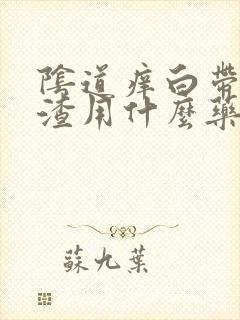 陰道痒白带
渣用什麼藥
蘇九葉